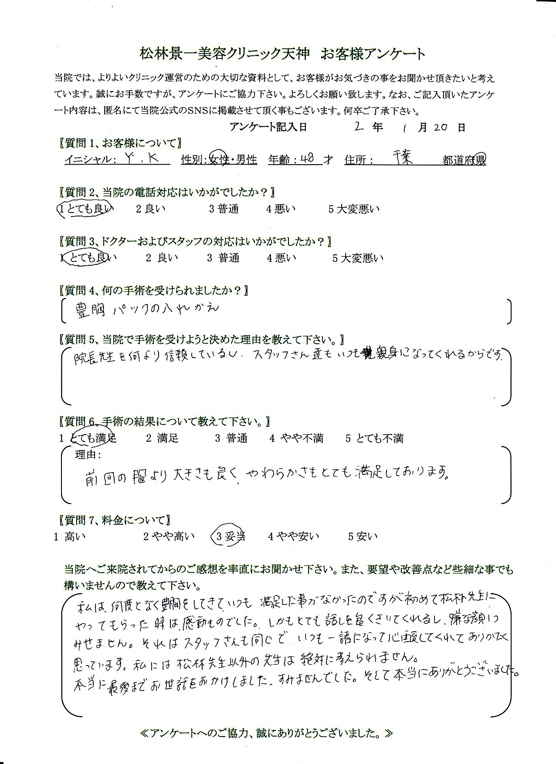 松林景一美容クリニック天神　お客様アンケート
当院では、よりよいクリニック運営のための大切な資料として、お客様がお気づきの事をお聞かせ頂きたいと考え
ています。誠にお手数ですが、アンケートにご協力下さい。よろしくお願い致します。なお、ご記入頂いたアンケ
ート内容は、匿名にて当院公式のSNSに掲載させて頂く事もございます。何卒ご了承下さい。
アンケート記入日　2 年　1 月 20 日
【質問1、お客様について】
イニシャル: Y.K　性別:女性・男性　年齢:48 才　住所:　千葉　都道府県
【質問2、当院の電話対応はいかがでしたか？】
1 とても良い　2 良い　3 普通　4 悪い　5 大変悪い
【質問3、ドクターおよびスタッフの対応はいかがでしたか？】
1 とても良い　2 良い　3 普通　4 悪い　5 大変悪い
【質問4、何の手術を受けられましたか？】
豊胸バックの入れかえ
【質問5、当院で手術を受けようと決めた理由を教えて下さい。】
院長先生を何より信頼しているし、スタッフさん達もいつも親身になってくれるからです。
【質問6、手術の結果について教えて下さい。】
1 とても満足　2 満足　3 普通　4 やや不満　5 とても不満
理由:
前回の胸より大きさも良く、やわらかさもとても満足しております。
【質問7、料金について】
1 高い　2 やや高い　3 妥当　4 やや安い　5 安い
当院へご来院されてからのご感想を率直にお聞かせ下さい。また、要望や改善点など些細な事でも
構いませんので教えて下さい。
私は何度となく豊胸をしてきていつも満足した事がなかったのですが初めて松林先生に
やってもらった時は感動ものでした。しかもとても話しを良くきいてくれるし、嫌な顔1つ
みせません。それはスタッフさんも同じで いつも一諸になって心配してくれてありがたく
思っています。私には松林先生以外の先生は絶対に考えられません。
本当に最後までお世話をおかけしました。すみませんでした。そして本当にありがとうございました。
≪アンケートへのご協力、誠にありがとうございました。≫